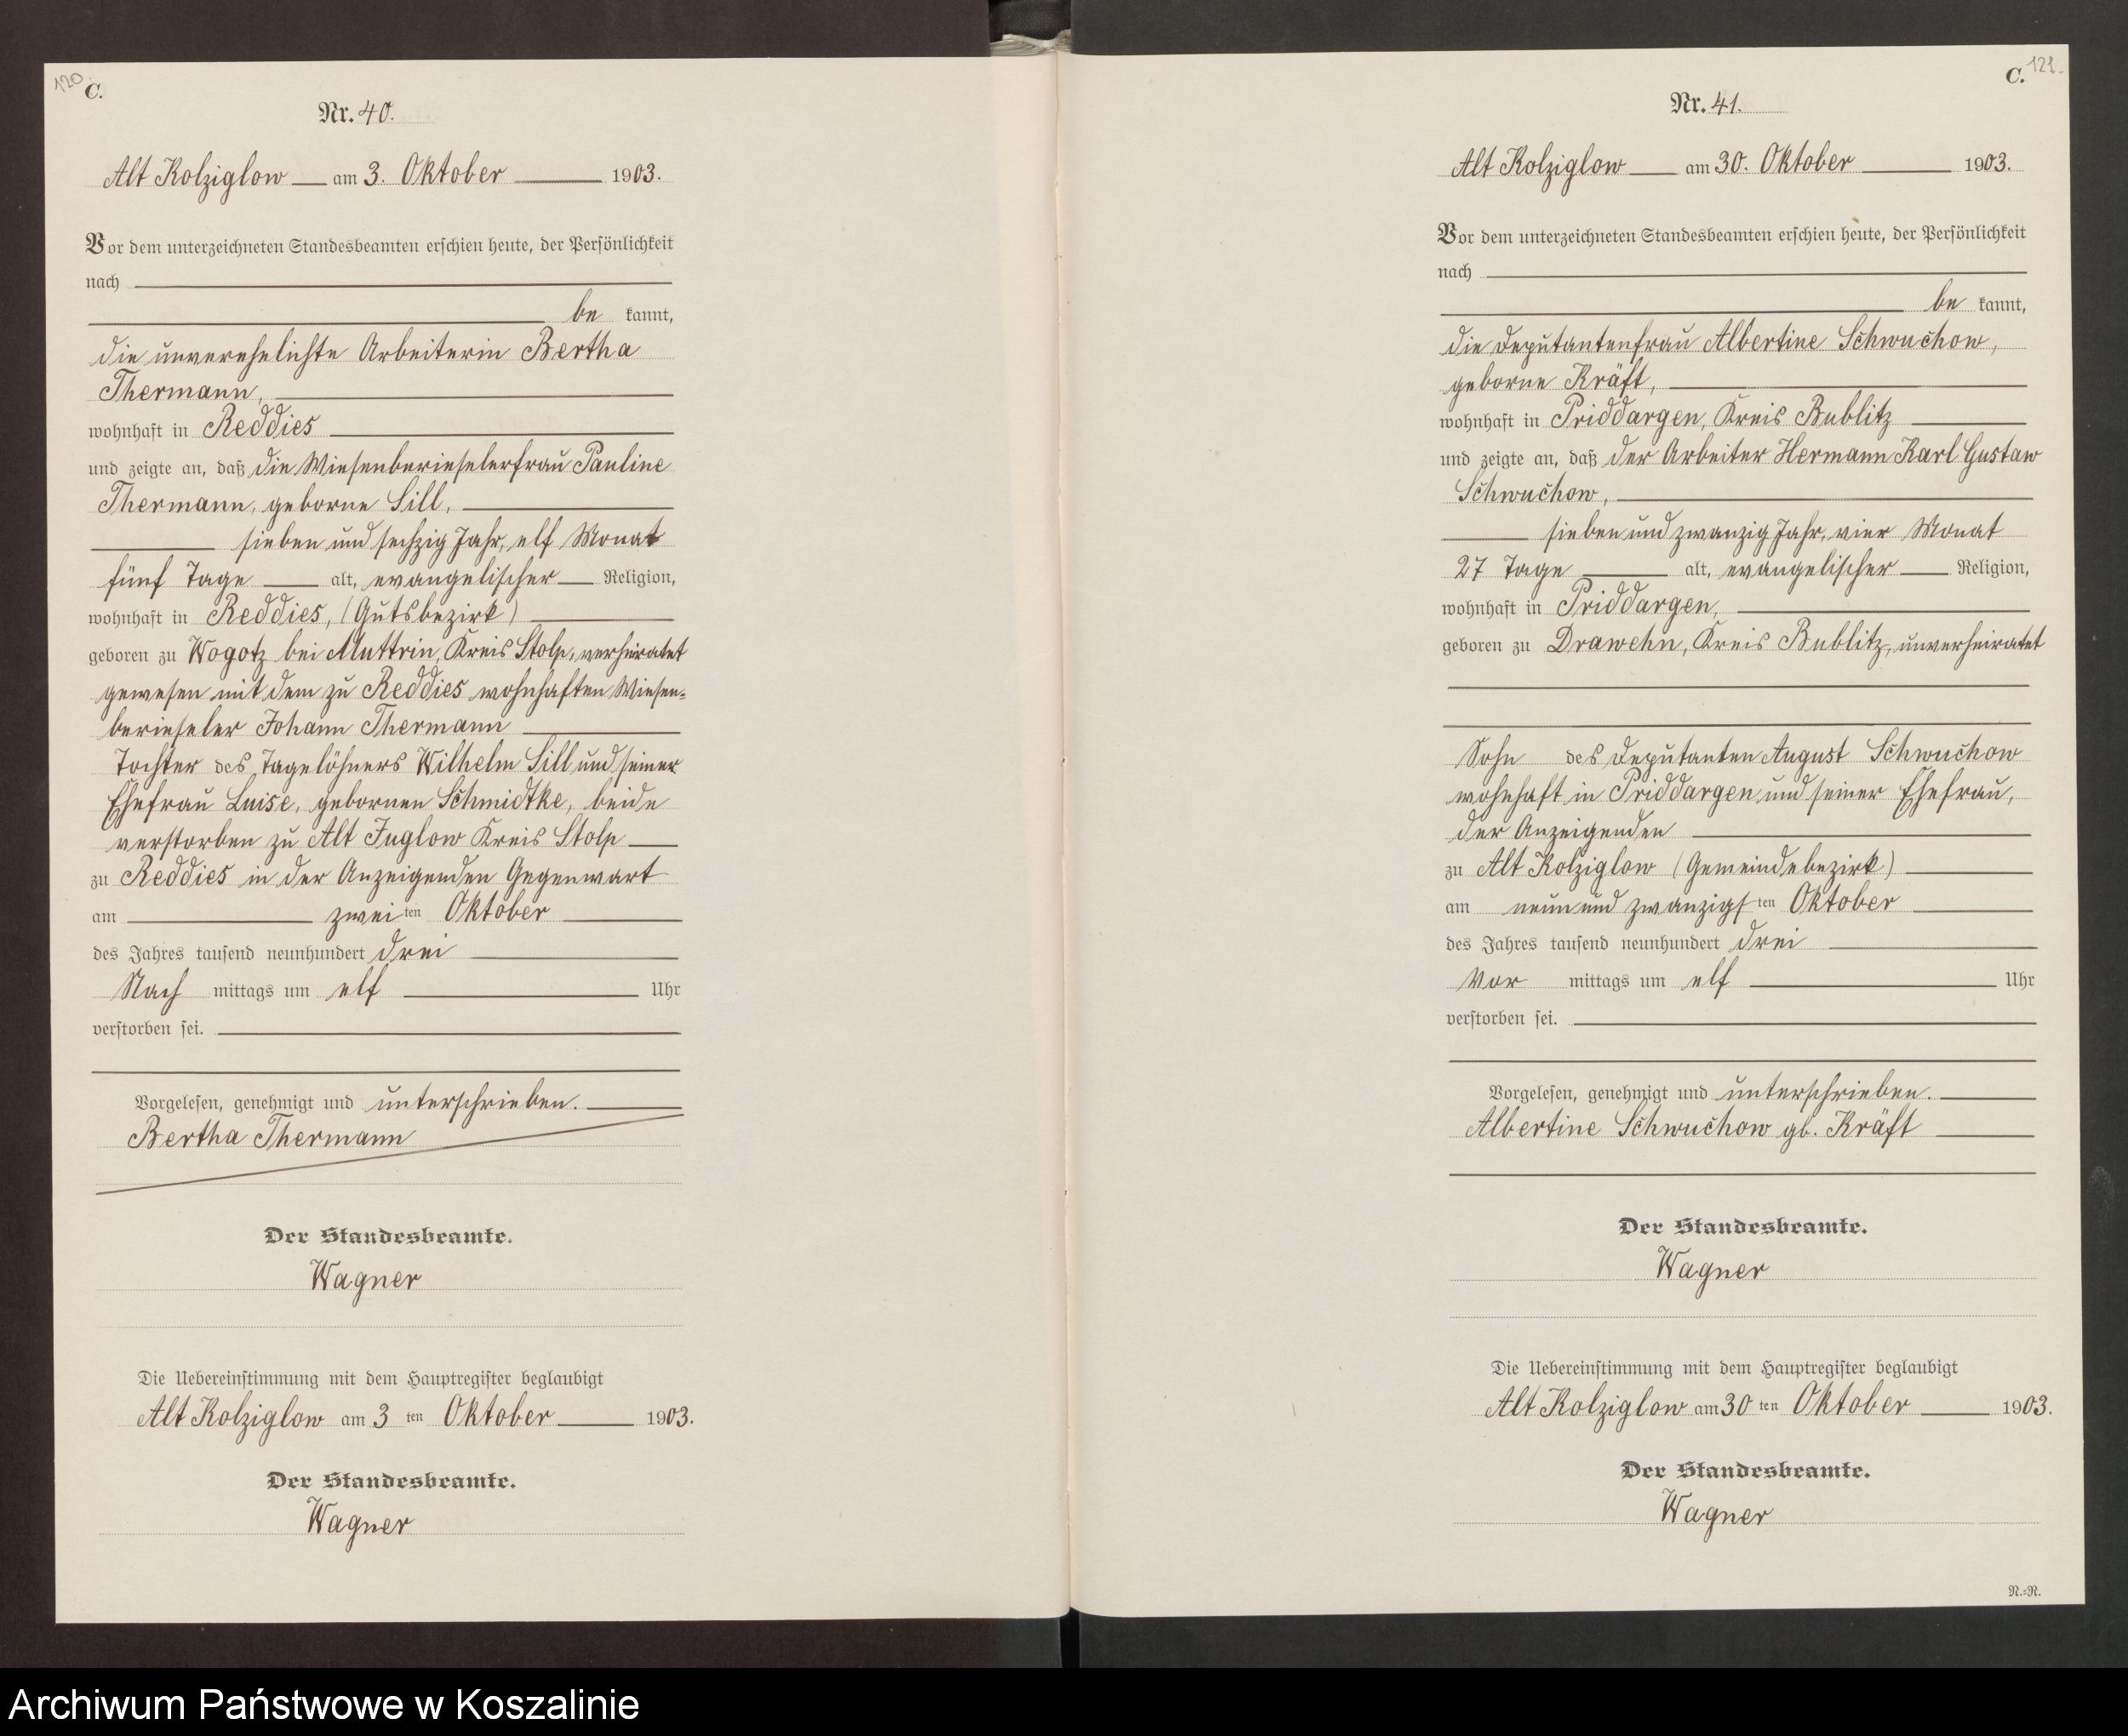 120
C.
Nr. 40.
Alt Kolziglow am 3. Oktober 1903.
Vor dem unterzeichneten Standesbeamten erschien heute, der Persönlichkeit
nach
be kannt,
die unverehelichte Arbeiterin Bertha
Thermann,
wohnhaft in Reddies
und zeigte an, daß die Wiesenberieselerfrau Pauline
Thermann, geborne Sill,
sieben und sechzig Jahr, elf Monat
fünf Tage alt, evangelischer Religion,
wohnhaft in Reddies, (Gutsbezirk)
geboren zu Wogotz bei Muttrin, Kreis Stolp, verheiratet
gewesen mit dem zu Reddies wohnhaften Wiesen-
berieseler Johann Thermann
Tochter des Tagelöhners Wilhelm Sill und seiner
Ehefrau Luise, gebornen Schmidtke, beide
verstorben zu Alt Juglow Kreis Stolp
zu Reddies in der Anzeigenden Gegenwart
am zwei ten Oktober
des Jahres tausend neunhundert drei
Nach mittags um elf Uhr
verstorben sei.
Vorgelesen, genehmigt und unterschrieben.
Bertha Thermann
Der Standesbeamte.
Wagner
Die Uebereinstimmung mit dem Hauptregister beglaubigt
Alt Kolziglow am 3 ten Oktober 1903.
Der Standesbeamte.
Wagner
C. 121
Nr. 41.
Alt Kolziglow am 30. Oktober 1903.
Vor dem unterzeichneten Standesbeamten erschien heute, der Persönlichkeit
nach
be kannt,
die Deputantenfrau Albertine Schwuchow,
geborne Kräft,
wohnhaft in Priddargen, Kreis Bublitz
und zeigte an, daß der Arbeiter Hermann Karl Gustaw
Schwuchow,
sieben und zwanzig Jahr, vier Monat
27 Tage alt, evangelischer Religion,
wohnhaft in Priddargen,
geboren zu Drawehn, Kreis Bublitz, unverheiratet
Sohn des Deputanten August Schwuchow
wohnhaft in Priddargen und seiner Ehefrau,
der Anzeigenden
zu Alt Kolziglow (Gemeindebezirk)
am neun und zwanzigs ten Oktober
des Jahres tausend neunhundert drei
Vor mittags um elf Uhr
verstorben sei.
Vorgelesen, genehmigt und unterschrieben.
Albertine Schwuchow gb. Kräft
Der Standesbeamte.
Wagner
Die Uebereinstimmung mit dem Hauptregister beglaubigt
Alt Kolziglow am 30 ten Oktober 1903.
Der Standesbeamte.
Wagner
N.-R.
Archiwum Państwowe w Koszalinie